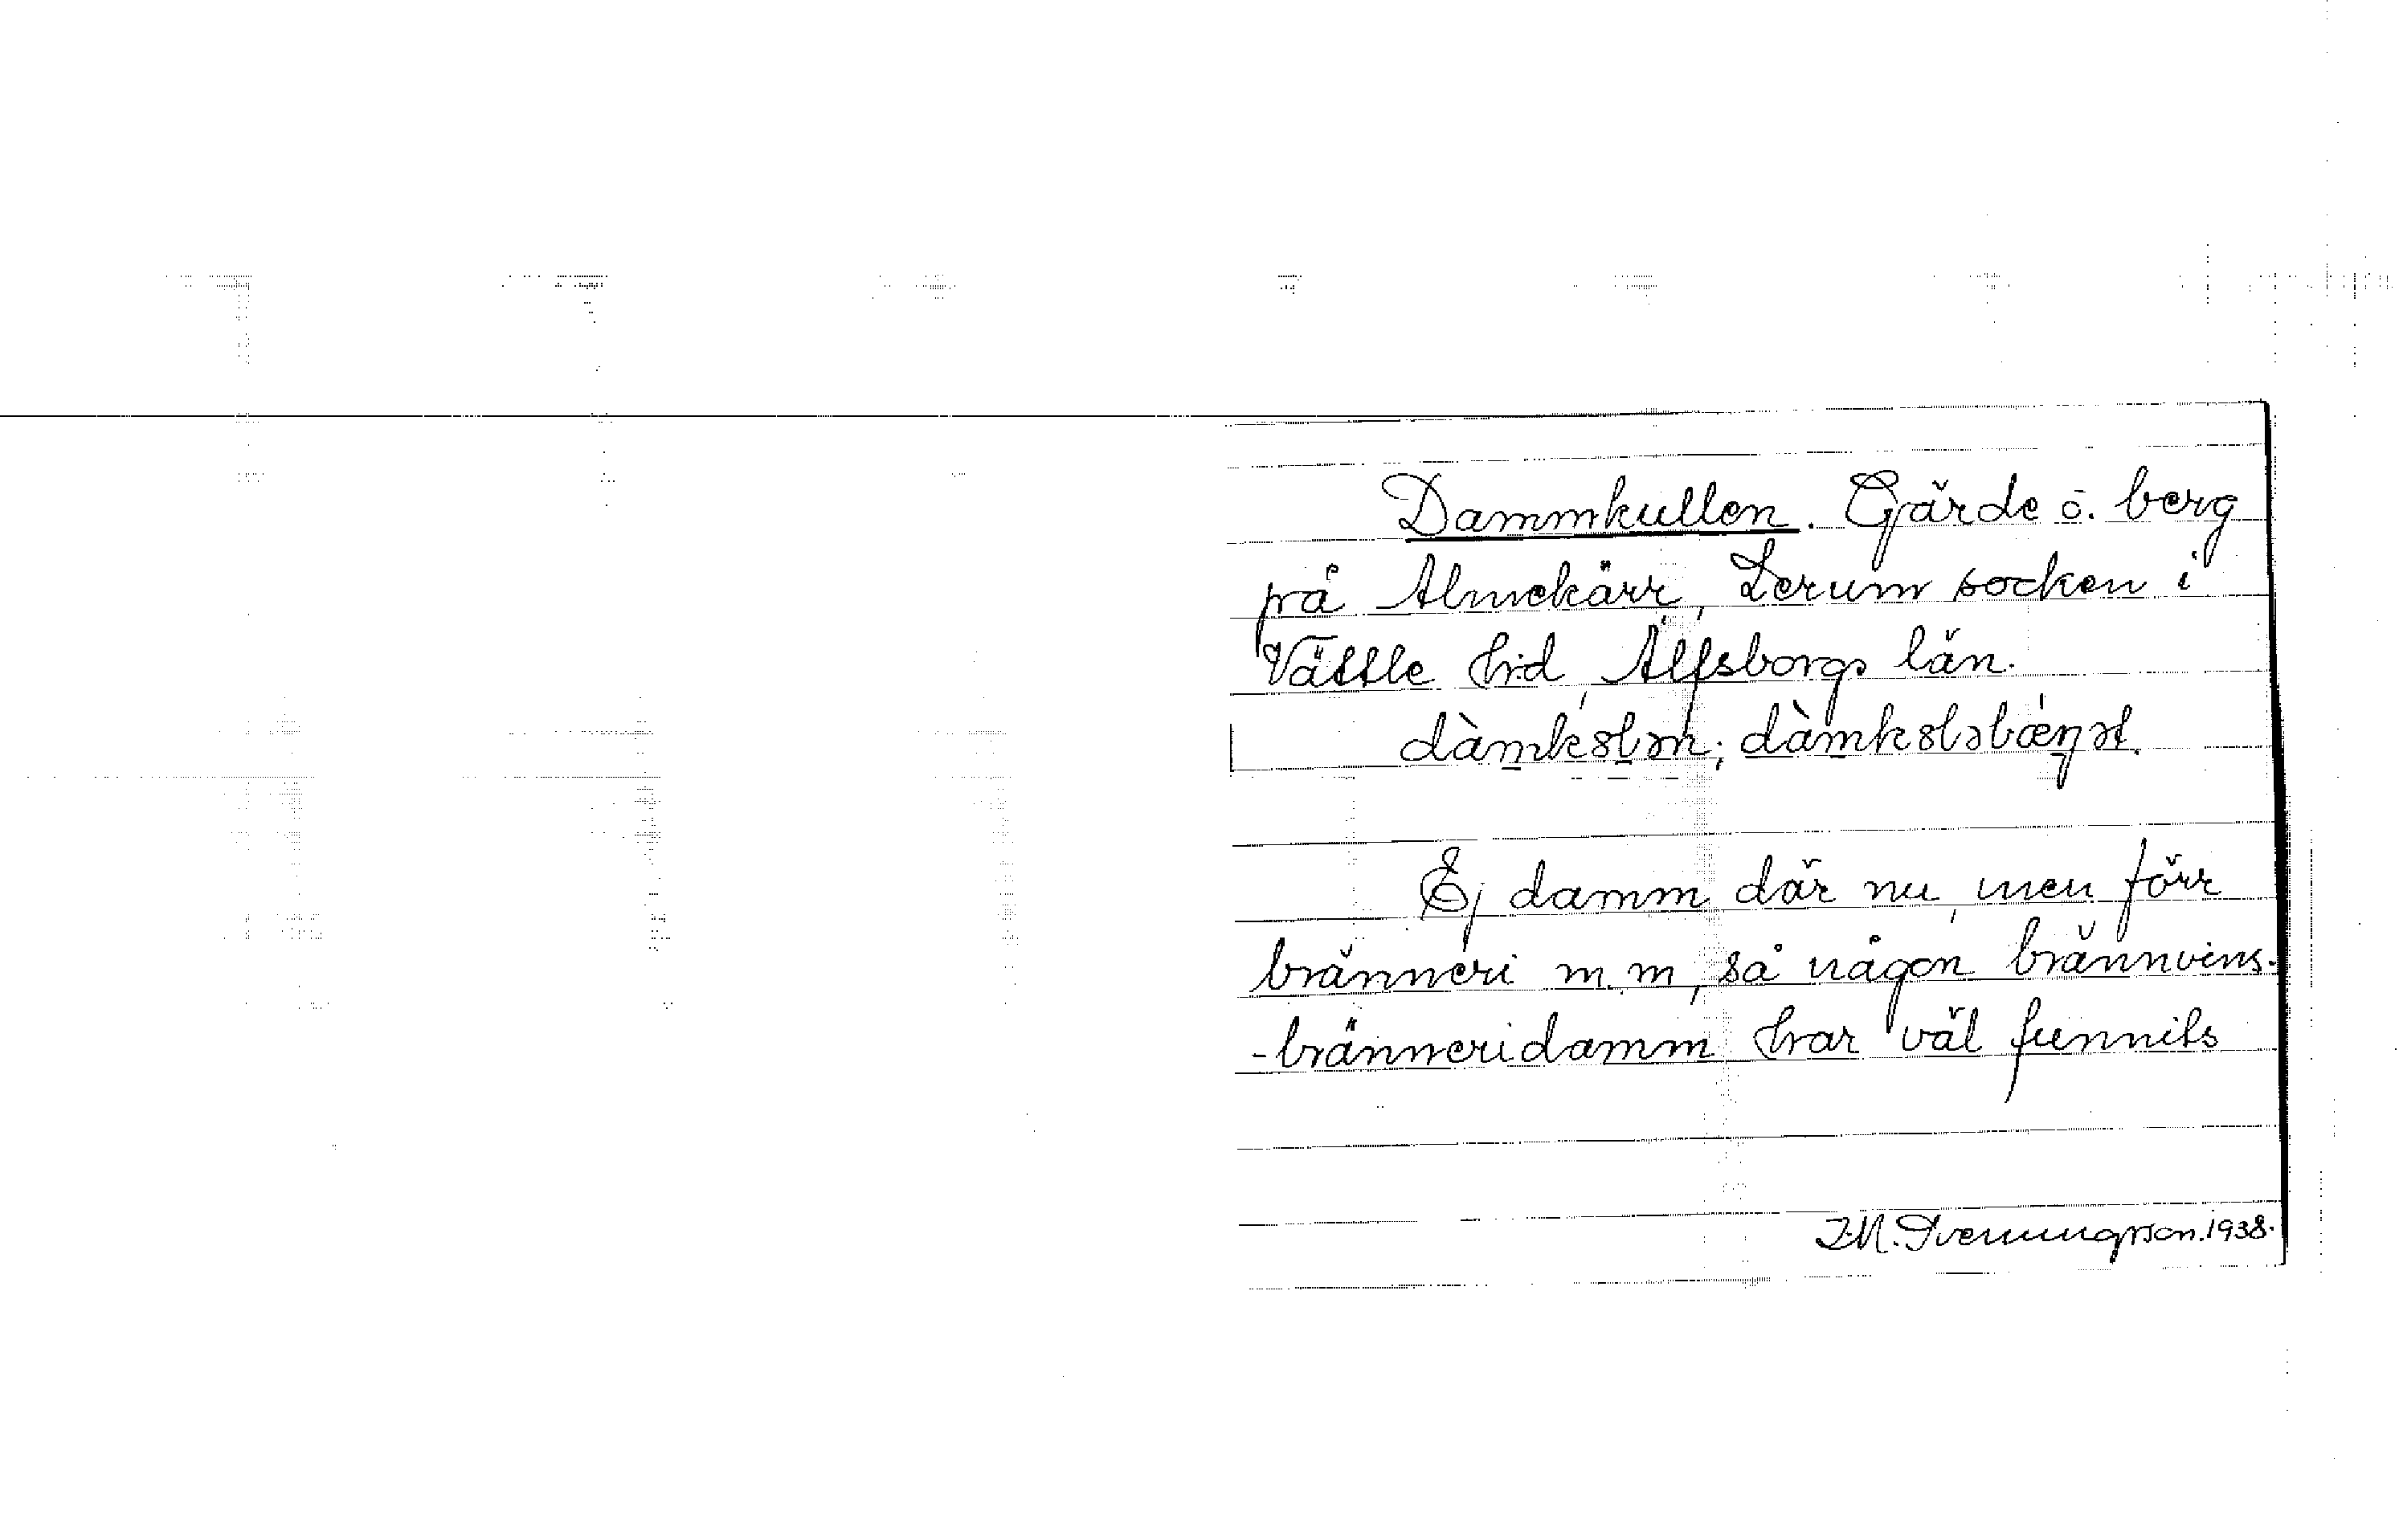 Dammkullen. Gärde o. berg
på Almekärr, Lerum socken i
Vättle hd, Älfsborgs län.
dàmkslən; dàmksləbæŋət.
Ej damm där nu, men förr
bränneri m.m, så någon brännvins-
-bränneridamm har väl funnits
J.M. Svenungsson. 1938.